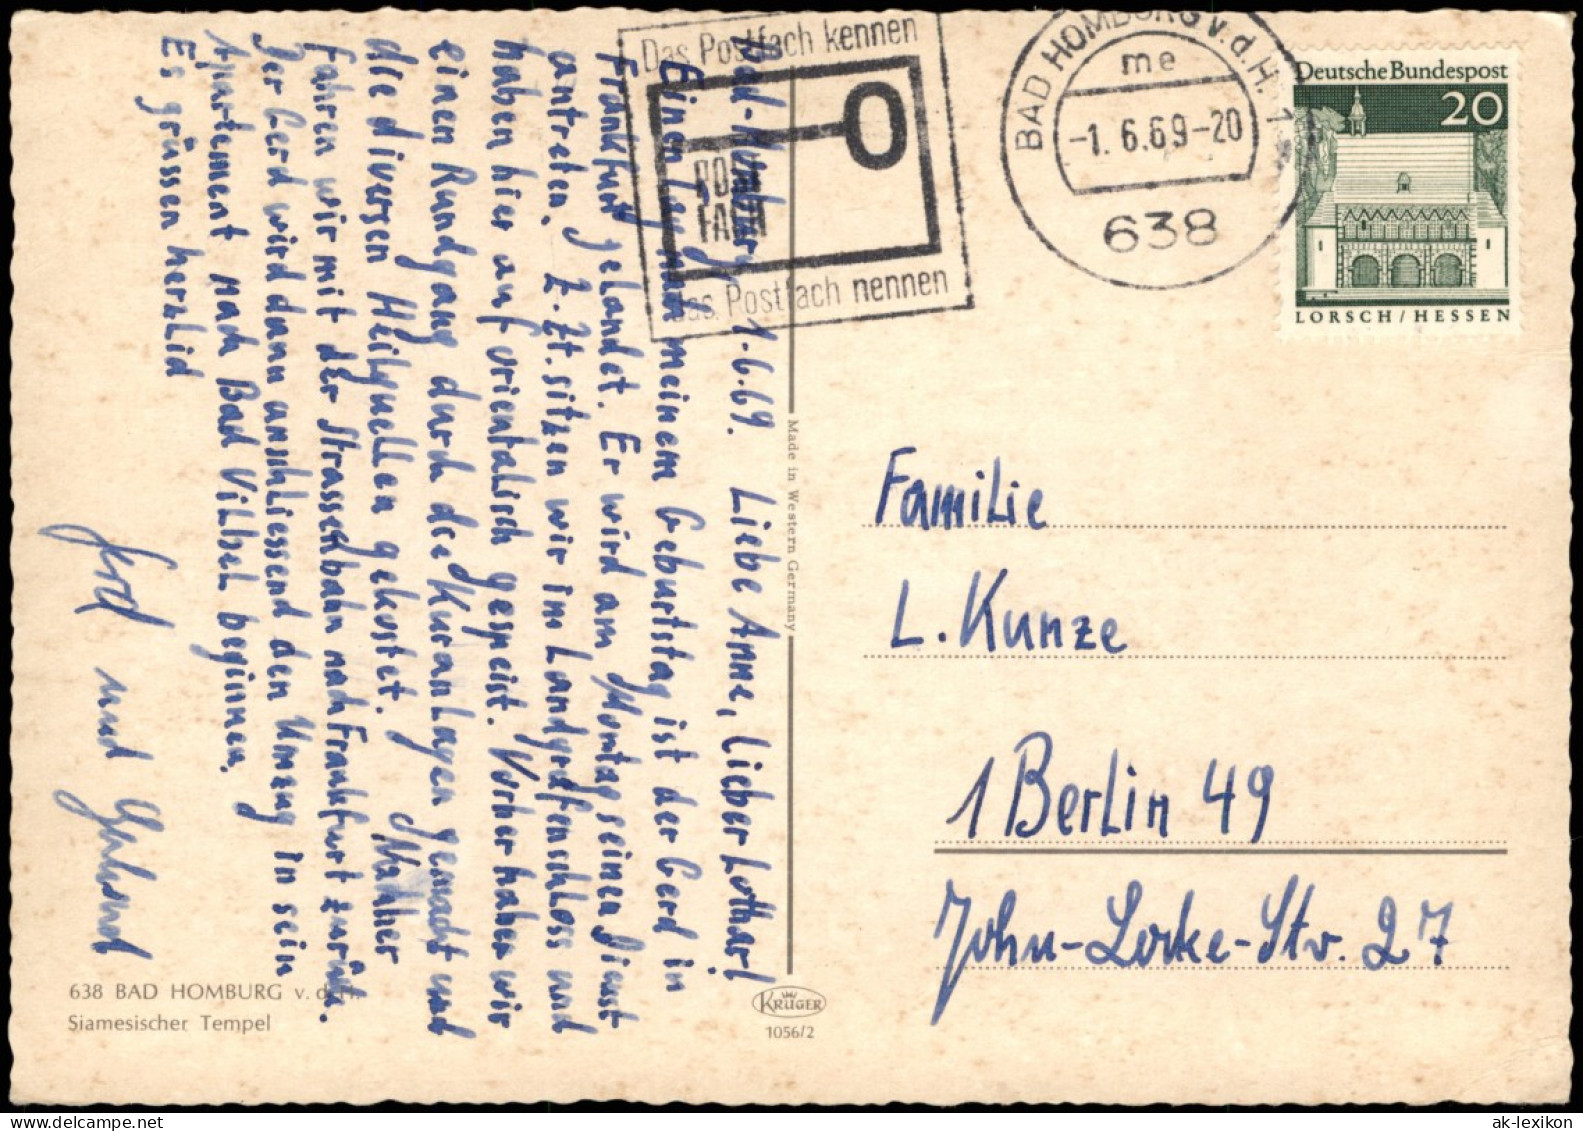 Das Postfach kennen
POST
FACH
das Postfach nennen
BAD HOMBURG v.d.H. 1
me
-1. 6.69-20
638
Deutsche Bundespost
20
LORSCH/HESSEN
Bad-Homburg, 1.6.69. Liebe Anne, Lieber Lothar!
Einen Tag nach meinem Geburtstag ist der Gerd in
Frankfurt gelandet. Er wird am Montag seinen Dienst
antreten. Z. Zt. sitzen wir im Landgrafenschloss und
haben hier auf orientalisch gespeist. Vorher haben wir
einen Rundgang durch die Kuranlagen gemacht und
die diversen Heilquellen gekostet. Nachher
fahren wir mit der Strassenbahn nach Frankfurt zurück.
Der Gerd wird dann anschliessend den Umzug in sein
Apartement nach Bad Vilbel beginnen.
Es grüssen herzlich
Gerd und
Made in Western Germany
Familie
L. Kunze
1 Berlin 49
John-Locke-Str. 27
638 BAD HOMBURG v. d. H.
Siamesischer Tempel
KRÜGER
1056/2
ak-lexikon.com